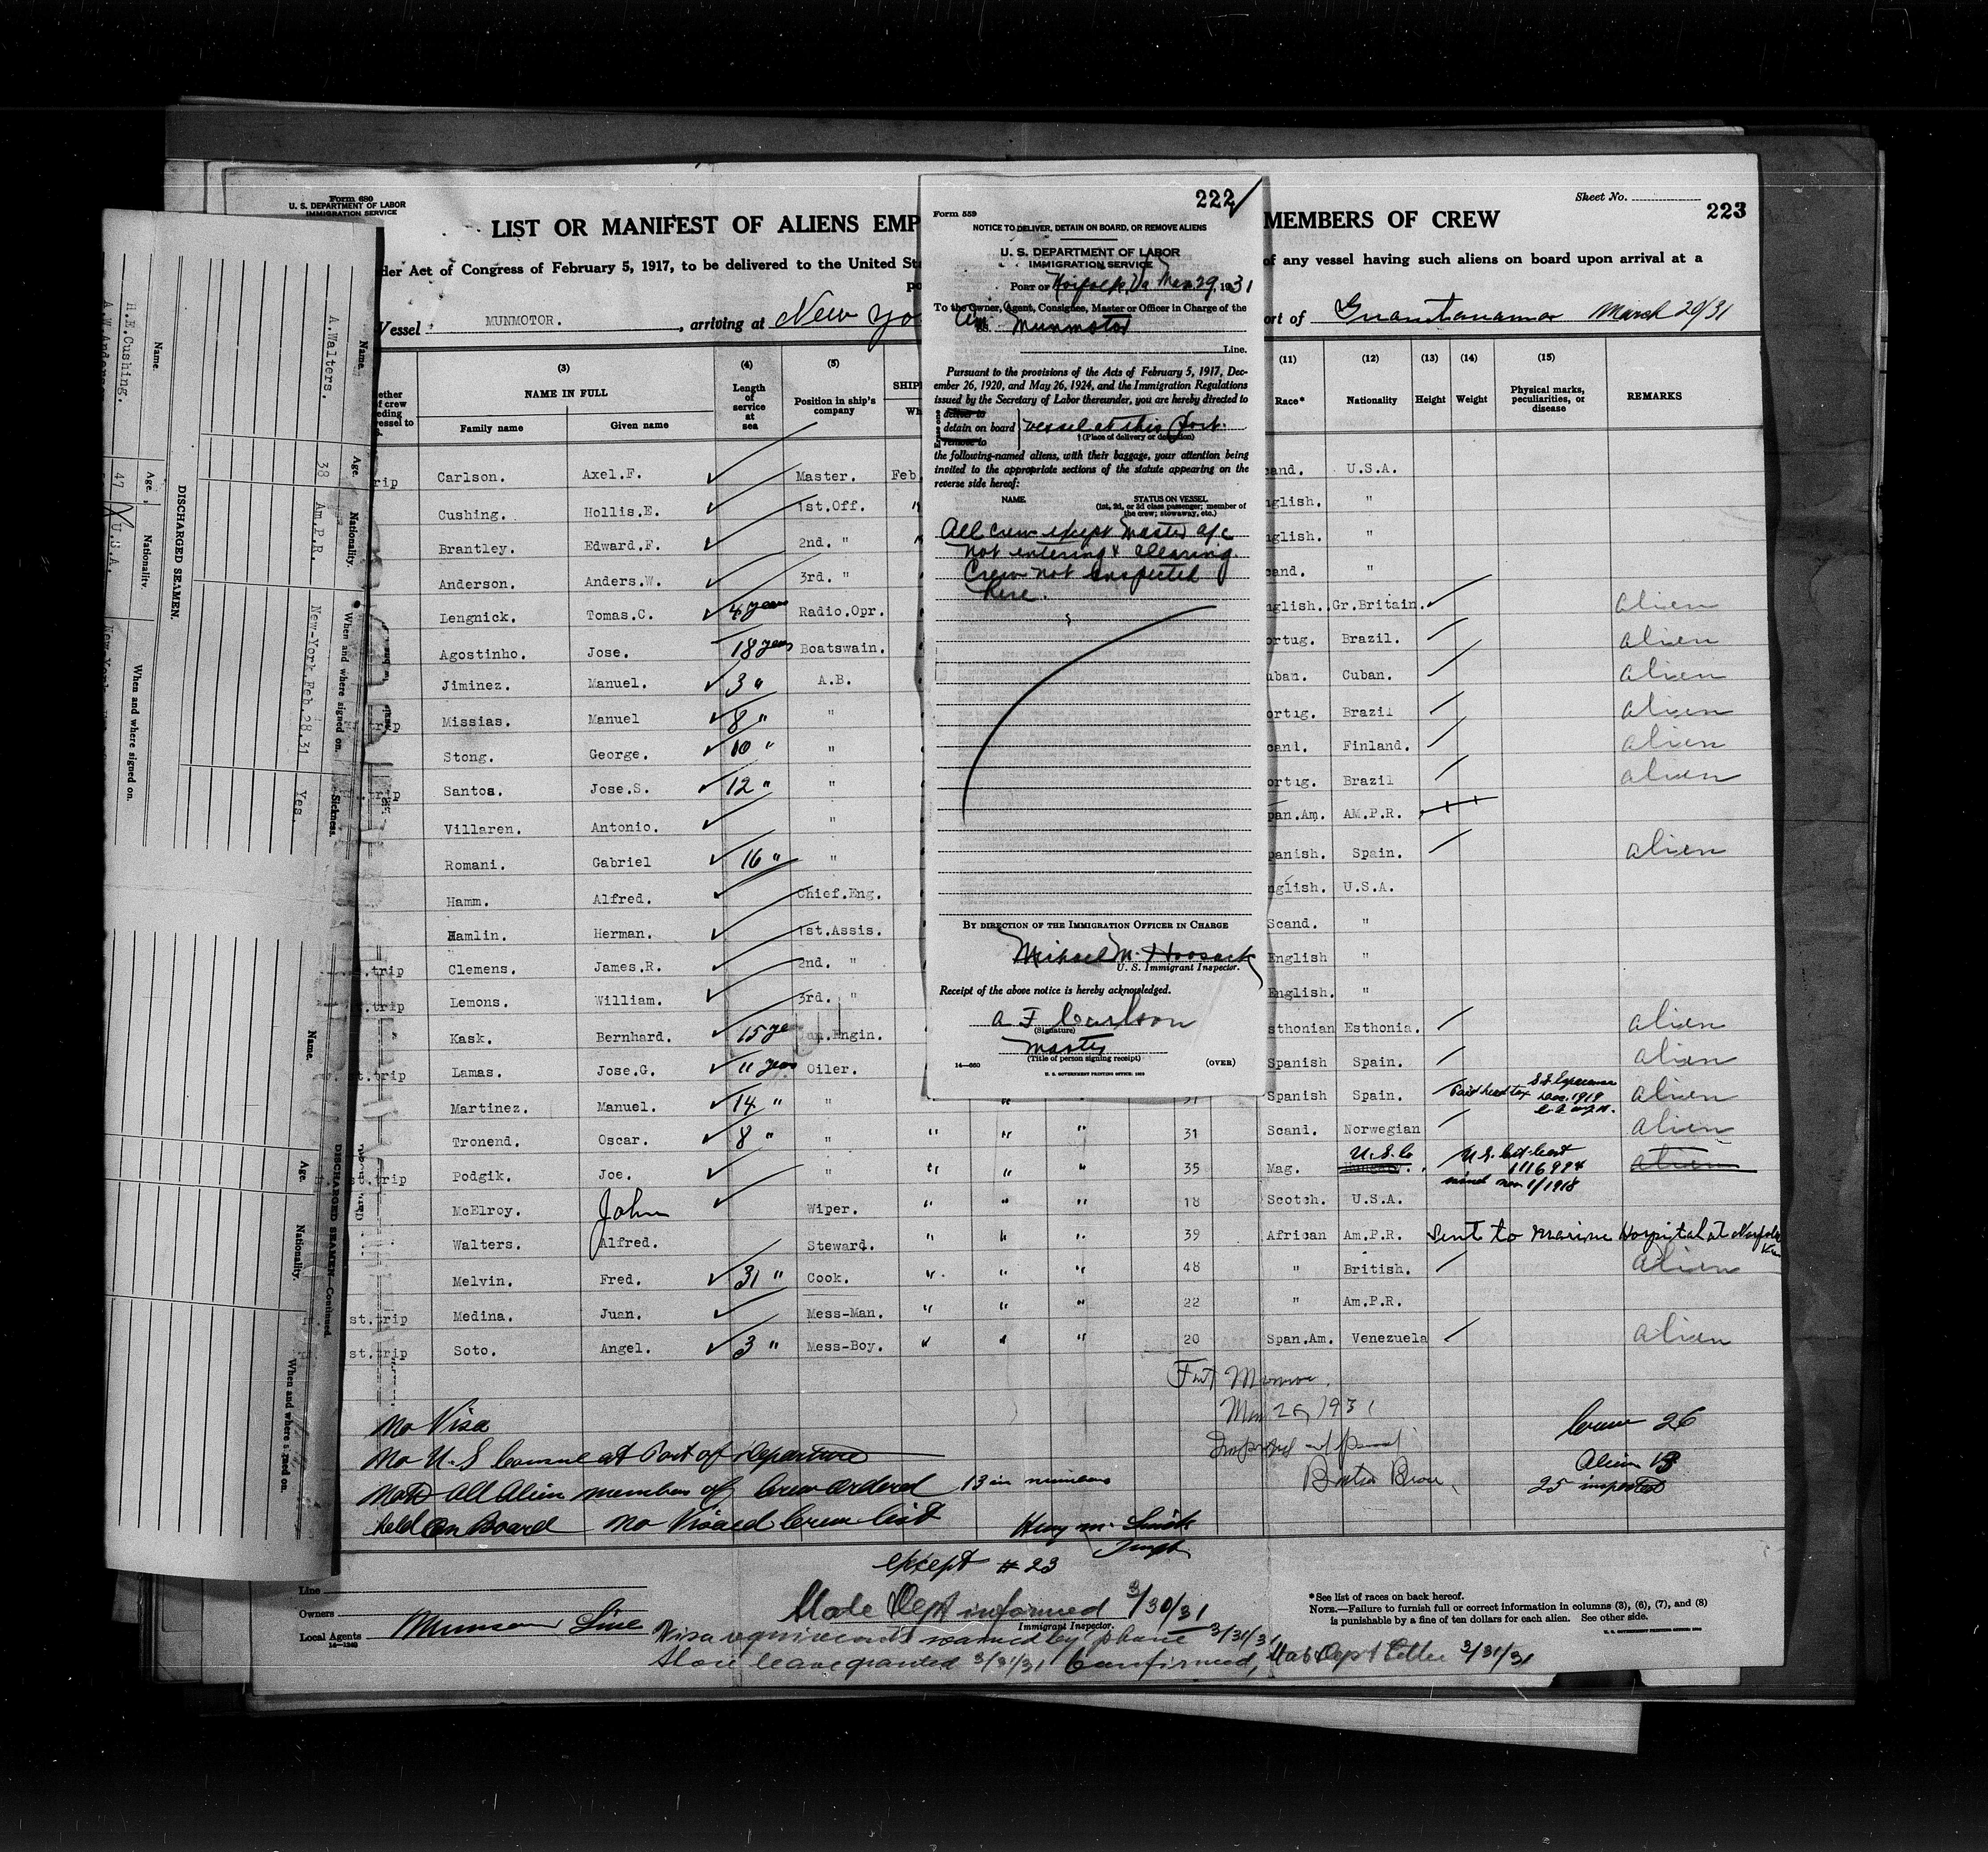 Form 680
U. S. DEPARTMENT OF LABOR
IMMIGRATION SERVICE
Sheet No.
223
LIST OR MANIFEST OF ALIENS EMP
MEMBERS OF CREW
der Act of Congress of February 5, 1917, to be delivered to the United St
of any vessel having such aliens on board upon arrival at a
Vessel MUNMOTOR. , arriving at New Yo
ort of Guantanamo March 20/31
(3) (4) (5) (11) (12) (13) (14) (15)
NAME IN FULL Length of service at sea Position in ship's company SHIP Race* Nationality Height Weight Physical marks, peculiarities, or disease REMARKS
Family name Given name Wh
rip Carlson. Axel.F. Master. Feb. and. U.S.A.
Cushing. Hollis.E. 1st.Off. " nglish. "
Brantley. Edward.F. 2nd. " nglish. "
Anderson. Anders.W. 3rd. " and. "
Lengnick. Tomas.C. 4 years Radio.Opr. nglish. Gr.Britain. alien
Agostinho. Jose. 18 years Boatswain. ortug. Brazil. alien
Jiminez. Manuel. 3 " A.B. uban. Cuban. alien
rip Missias. Manuel 8 " " ortug. Brazil alien
Stong. George. 10 " " Finland. alien
rip Santos. Jose.S. 12 " " ortug. Brazil alien
Villaren. Antonio. " pan.Am. AM.P.R.
Romani. Gabriel 16 " " panish. Spain. alien
Hamm. Alfred. Chief.Eng. nglish. U.S.A.
Hamlin. Herman. 1st.Assis. Scand. "
.trip Clemens. James.R. 2nd. " English "
.trip Lemons. William. 3rd. " English. "
" Kask. Bernhard. 15 ye .Engin. sthonian Esthonia. alien
t.trip Lamas. Jose.G. 11 years Oiler. Spanish Spain. alien
Martinez. Manuel. 14 " " Spanish Spain. Paid head tax 1919 alien
Tronend. Oscar. 8 " " " " " 31 Scand. Norwegian alien
st.trip Podgik. Joe. " " " " 35 Mag. U.S.C U.S. Cit. Cert 1116994 alien
McElroy. John Wiper. " " " 18 Scotch. U.S.A.
Walters. Alfred. Steward. " " " 39 African Am.P.R. Sent to Marine Hospital at Norfolk
Melvin. Fred. 31 " Cook. " " " 48 " British. alien
st.trip Medina. Juan. Mess-Man. " " " 22 " Am.P.R.
st.trip Soto. Angel. 3 " Mess-Boy. " " " 20 Span.Am. Venezuela alien
No Visa
No U.S Consul at Port of Departure
All Alien members of Crew ordered 13 in numbers
held On Board No Visaed Crew list
except # 23
Crew 26
Alien 13
25 inspected
State Dept informed 3/30/31
Immigrant Inspector.
Visa requirements waived by phone 3/31/31
Shore leave granted 3/31/31 Confirmed, State Dept letter 3/31/31
Line
Owners
Local Agents Munson Line
14—1243
*See list of races on back hereof.
NOTE.—Failure to furnish full or correct information in columns (3), (6), (7), and (8)
is punishable by a fine of ten dollars for each alien. See other side.
222
Form 559
NOTICE TO DELIVER, DETAIN ON BOARD, OR REMOVE ALIENS
U. S. DEPARTMENT OF LABOR
IMMIGRATION SERVICE
PORT OF Norfolk, Va Mar. 29, 1931
To the Owner, Agent, Consignee, Master or Officer in Charge of the
Am SS. Munmotor
Line.
Pursuant to the provisions of the Acts of February 5, 1917, Dec-
ember 26, 1920, and May 26, 1924, and the Immigration Regulations
issued by the Secretary of Labor thereunder, you are hereby directed to
deliver to
detain on board vessel at this port.
remove to
† (Place of delivery or detention)
the following-named aliens, with their baggage, your attention being
invited to the appropriate sections of the statute appearing on the
reverse side hereof:
NAME. STATUS ON VESSEL
(1st, 2d, or 3d class passenger; member of
the crew; stowaway, etc.)
All crew except master a/c
not entering & clearing.
Crew not inspected
here.
BY DIRECTION OF THE IMMIGRATION OFFICER IN CHARGE
U. S. Immigrant Inspector.
Receipt of the above notice is hereby acknowledged.
A F Carlson
(Signature)
Master
(Title of person signing receipt)
14—660 (OVER)
U. S. GOVERNMENT PRINTING OFFICE: 1930
DISCHARGED SEAMEN.
Name. Age. Nationality. When and where signed on. Sickness.
A.Walters. 38 Am.P.R. New-York.Feb.28.31 Yes.
Name. Age. Nationality. When and where signed on.
H.E.Cushing. 47 U.S.A.
DISCHARGED SEAMEN—Continued.
Name. Age. Nationality. When and where signed on.